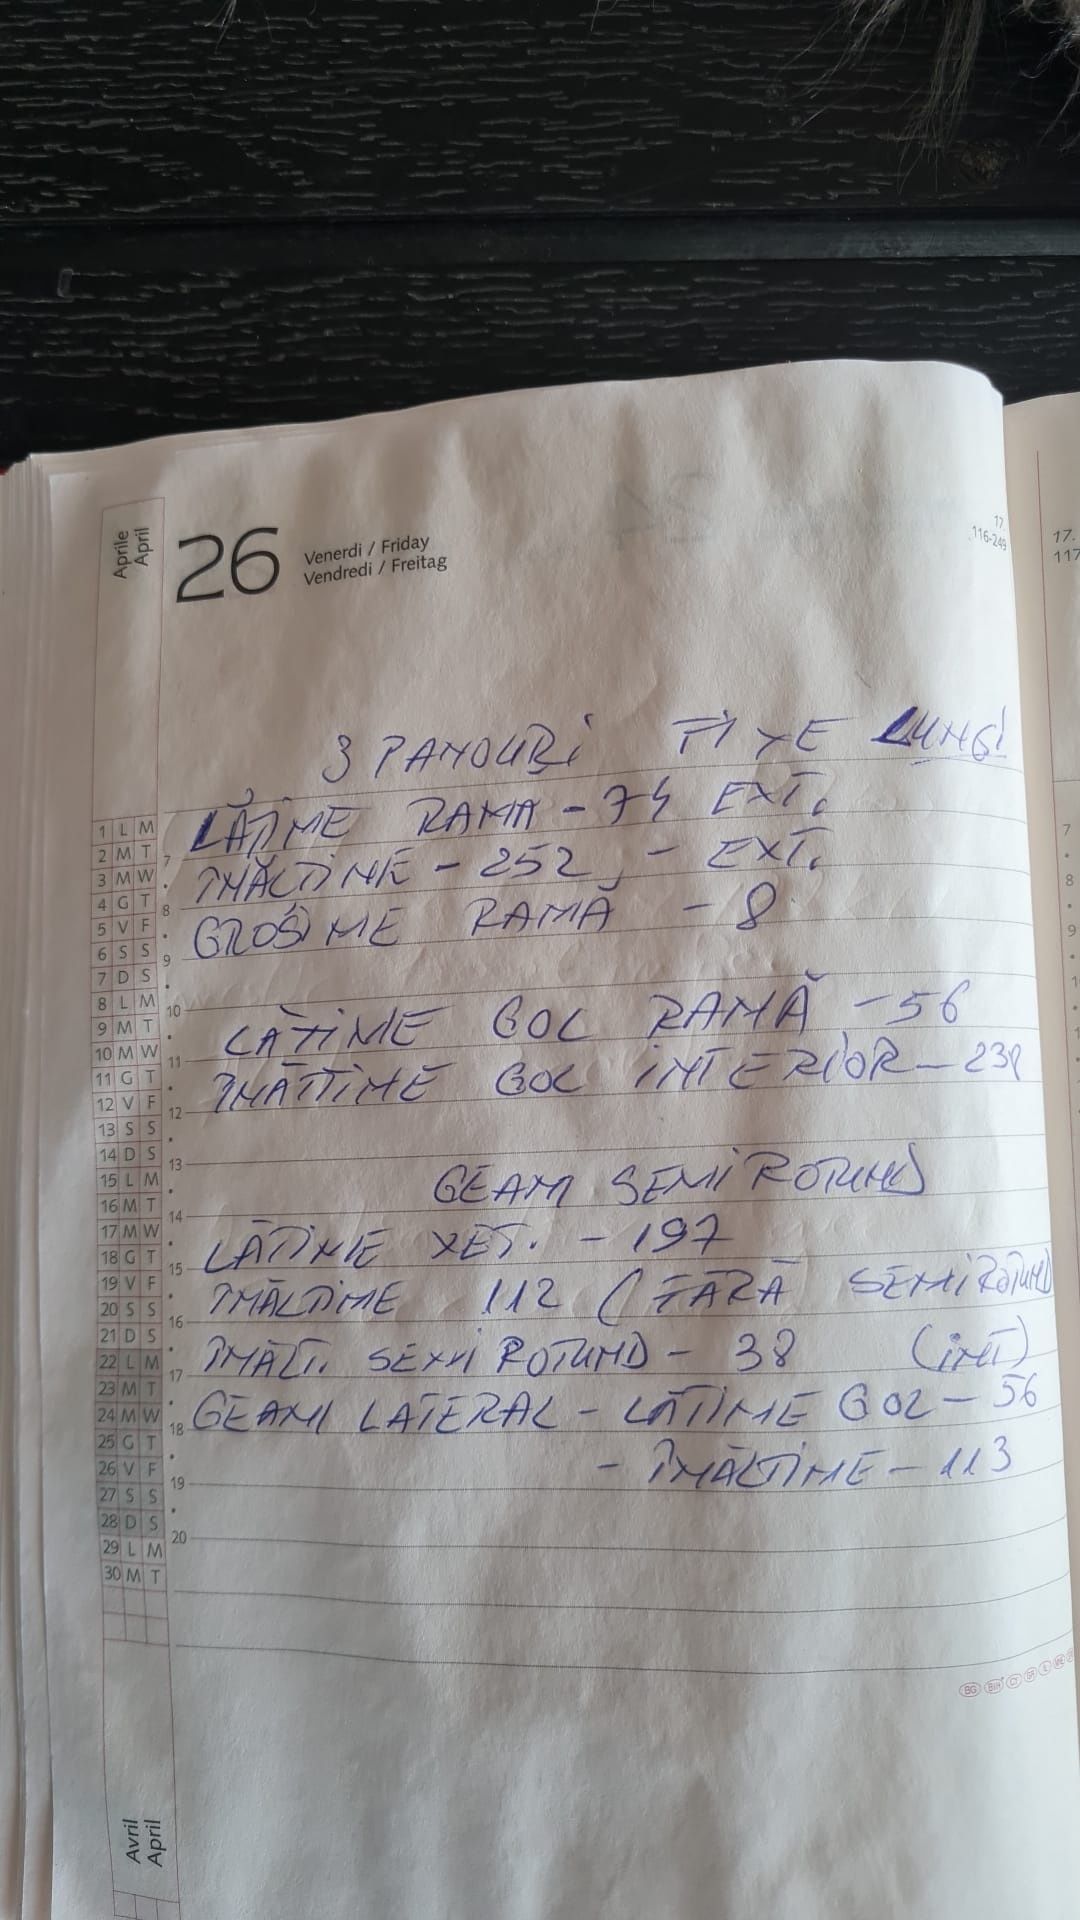 Aprile
April
26
Venerdi / Friday
Vendredi / Freitag
17.
116-249
17.
117
3 PANOURI FIXE LUNGI
LĂȚIME RAMA - 74 EXT.
ÎNĂLȚIME - 252 - EXT.
GROSIME RAMĂ - 8
LĂȚIME GOL RAMĂ - 56
ÎNĂLȚIME GOL INTERIOR - 238
GEAM SEMIROTUND
LĂȚIME EXT. - 197
ÎNĂLȚIME 112 (FĂRĂ SEMIROTUND
ÎNĂLȚ. SEMIROTUND - 38 (INT)
GEAM LATERAL - LĂȚIME GOL - 56
- ÎNĂLȚIME - 113
1 L M
2 M T
3 M W
4 G T
5 V F
6 S S
7 D S
8 L M
9 M T
10 M W
11 G T
12 V F
13 S S
14 D S
15 L M
16 M T
17 M W
18 G T
19 V F
20 S S
21 D S
22 L M
23 M T
24 M W
25 G T
26 V F
27 S S
28 D S
29 L M
30 M T
7
8
9
10
11
12
13
14
15
16
17
18
19
20
7
8
9
BG BIH CY GR IL
Avril
April